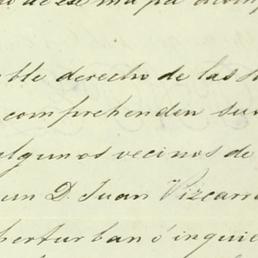 de ese mapa
ble derecho de las
comprehenden sur
algunos vecinos de
un D. Juan Vizcarr
perturban ó inquie